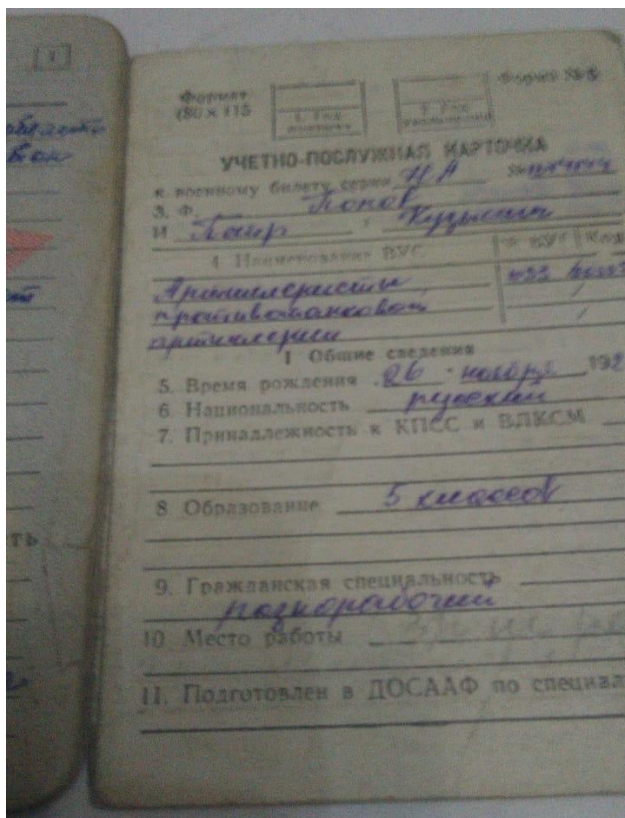 1
Формат
(80 х 115
Форма №8
1. Год
2. Год
УЧЕТНО-ПОСЛУЖНАЯ КАРТОЧКА
к военному билету серии НА №
3. Ф. Попов
И Таир Кузьмич
4 Наименование ВУС № ВУС Код
Артиллеристы
противотанковой
артиллерии
I Общие сведения
5. Время рождения 26 ноября 192
6. Национальность русский
7. Принадлежность к КПСС и ВЛКСМ
8. Образование 5 классов
9. Гражданская специальность
разнорабочий
10 Место работы
11. Подготовлен в ДОСААФ по специал
ть